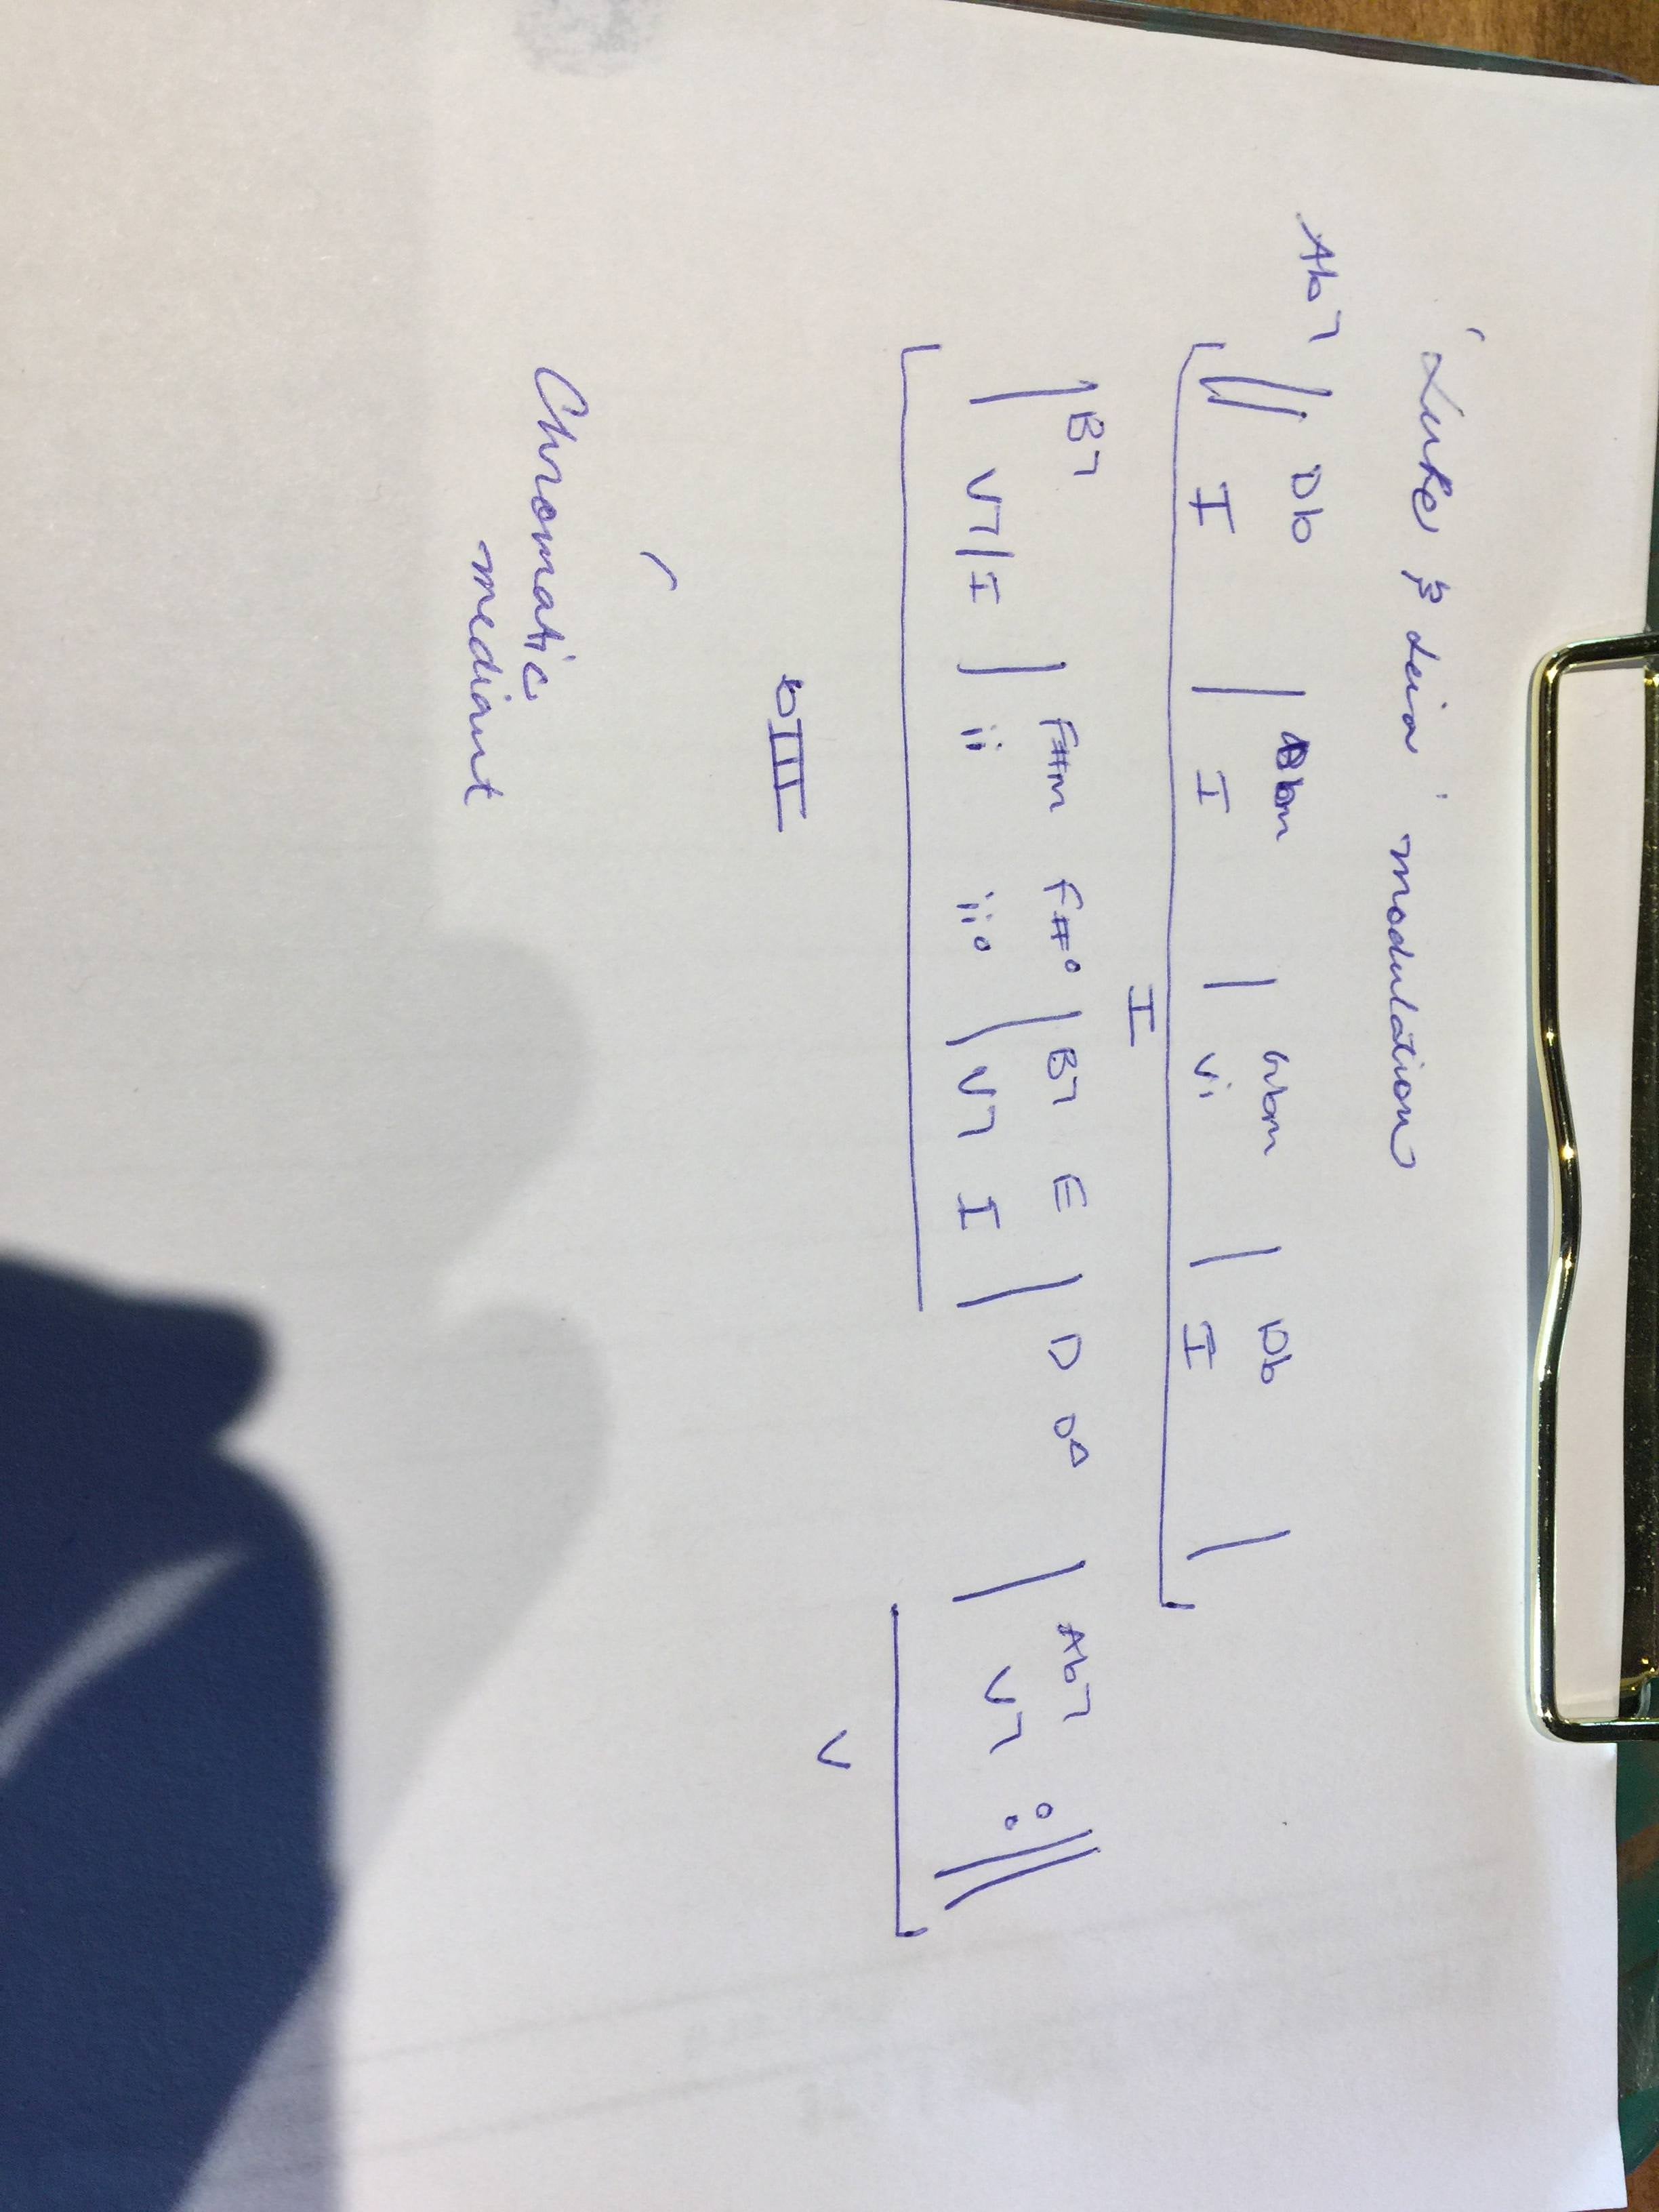 'Luke & Leia' modulation
Ab7 || Db | bm | Gbm | Db |
I I vi I
I
| B7 | F#m F#° | B7 E | D D∆ | Ab7 :||
V7/I | ii ii° | V7 I | V7
bIII V
Chromatic
mediant